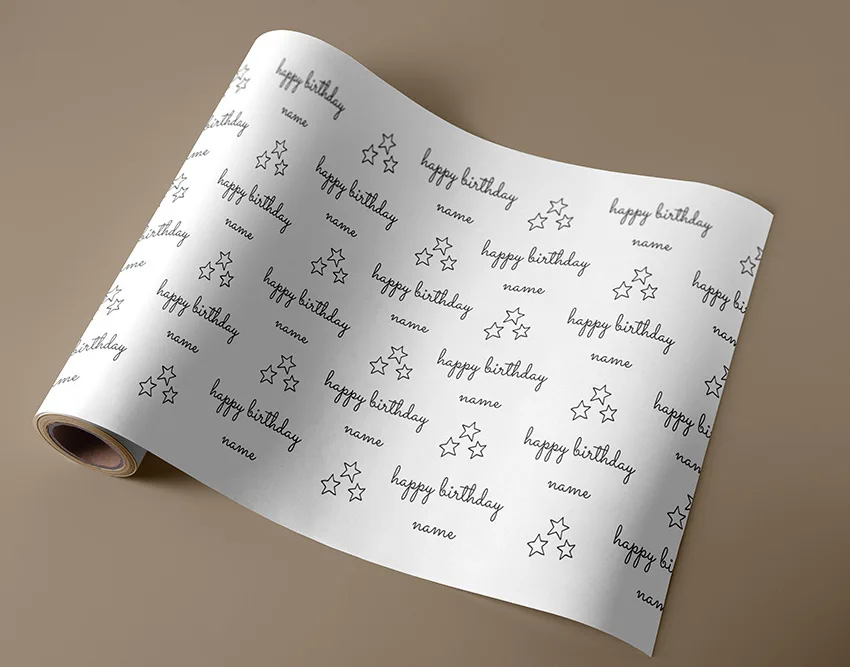 happy birthday
name
birthday
me
happy birthday
name
happy birthday
name
happy birthday
name
happy birthday
name
birthday
me
happy birthday
name
happy bi
nam
happy birthday
name
happy birthday
name
happy birthday
name
happy birthday
name
birthday
me
happy birthday
name
happy birthday
name
happy birthday
name
happy bi
nam
happy birthday
name
happy birthday
name
happy bi
nam